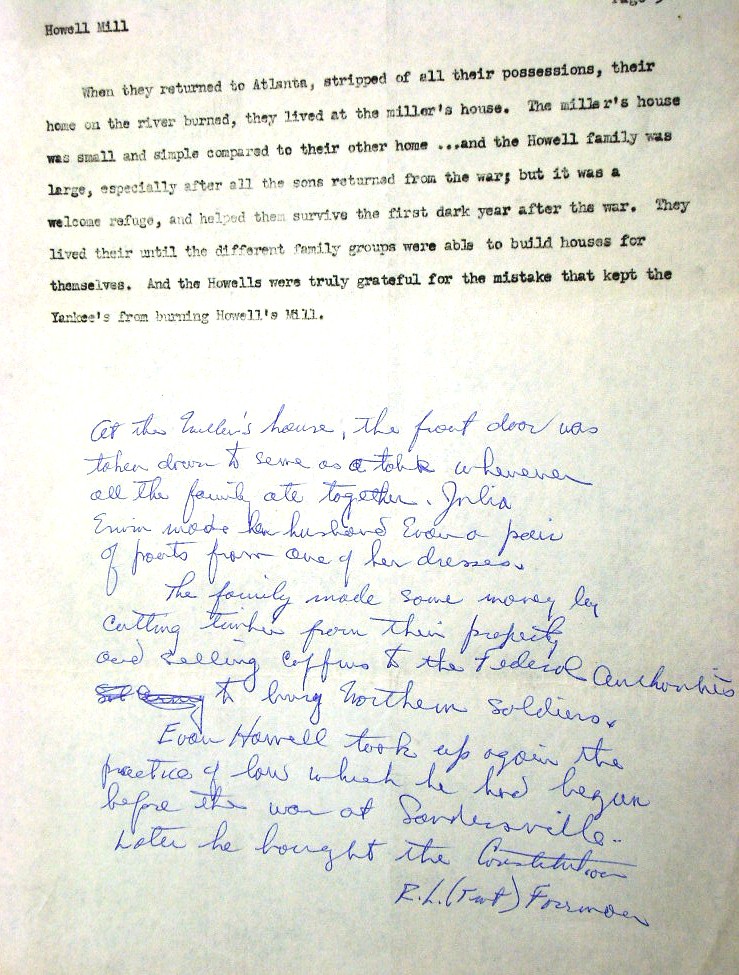 Howell Mill
When they returned to Atlanta, stripped of all their possessions, their
home on the river burned, they lived at the miller's house. The miller's house
was small and simple compared to their other home ...and the Howell family was
large, especially after all the sons returned from the war; but it was a
welcome refuge, and helped them survive the first dark year after the war. They
lived their until the different family groups were able to build houses for
themselves. And the Howells were truly grateful for the mistake that kept the
Yankee's from burning Howell's Mill.
At the Miller's house, the front door was
taken down to serve as a table whenever
all the family ate together. Julia
Erwin made her husband Evan a pair
of pants from one of her dresses.
The family made some money by
cutting timber from their property
and selling coffins to the Federal Authorities
to bury Northern soldiers.
Evan Howell took up again the
practice of law which he had begun
before the war at Sandersville.
Later he bought the Constitution
R.L. (Tut) Foreman